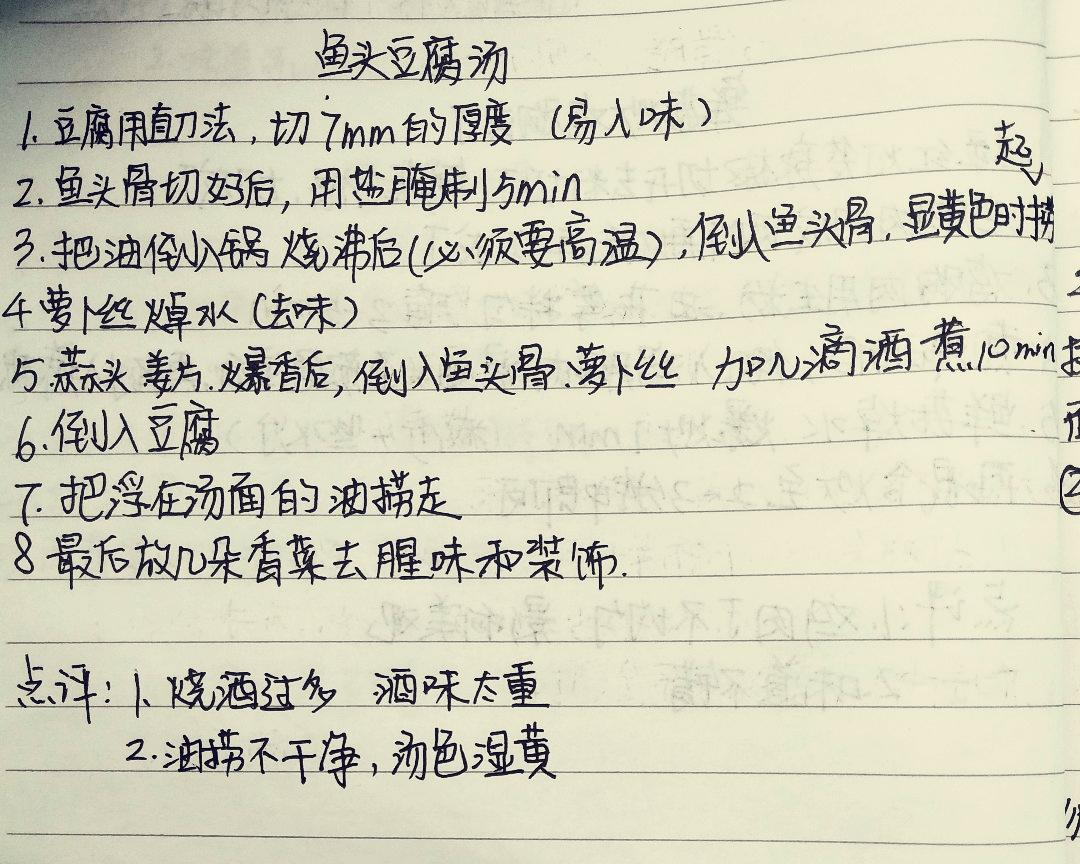 鱼头豆腐汤
1. 豆腐用直刀法，切7mm的厚度（易入味）
2. 鱼头骨切好后，用盐腌制5min
3. 把油倒入锅烧沸后（必须要高温），倒入鱼头骨，显黄色时捞起
4 萝卜丝焯水（去味）
5. 蒜头 姜片.爆香后，倒入鱼头骨.萝卜丝 加几滴酒 煮10min
6. 倒入豆腐
7. 把浮在汤面的油捞走
8 最后放几朵香菜去腥味和装饰.
点评：1. 烧酒过多 酒味太重
2. 油捞不干净，汤色湿黄